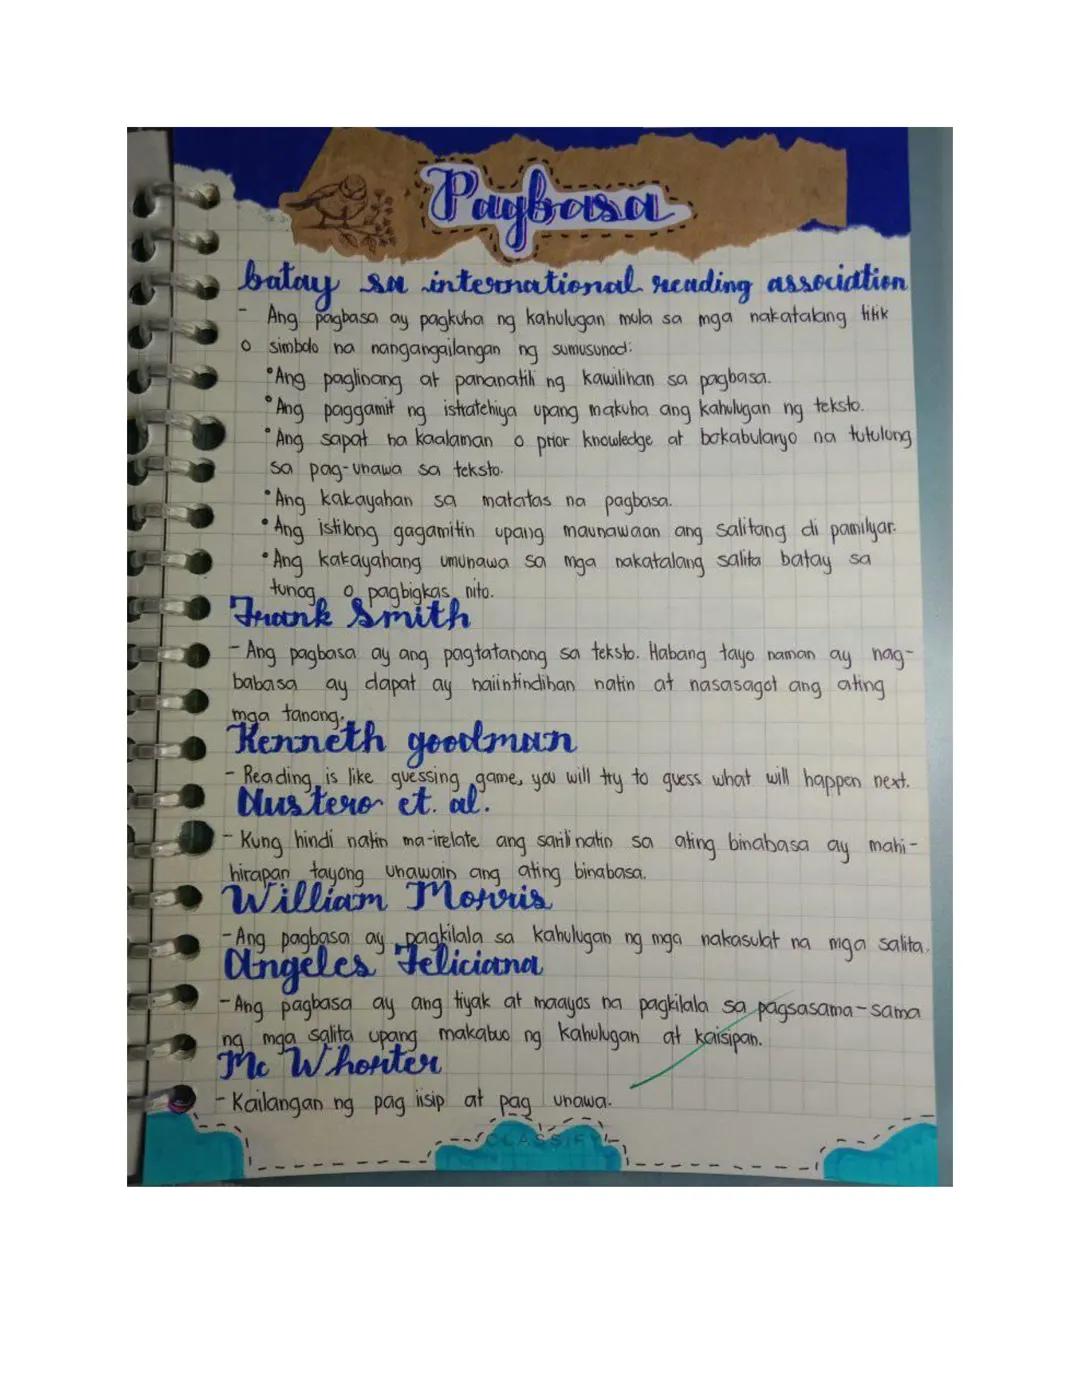 Pagbasa
batay sa international reading association
- Ang pagbasa ay pagkuha ng kahulugan mula sa mga nakatalang titik
o simbolo na nangangailangan ng sumusunod:
• Ang paglinang at pananatili ng kawilihan sa pagbasa.
• Ang paggamit ng istratehiya upang makuha ang kahulugan ng teksto.
• Ang sapat na kaalaman o prior knowledge at bokabularyo na tutulong
sa pag-unawa sa teksto.
• Ang kakayahan sa matatas na pagbasa.
• Ang istilong gagamitin upang maunawaan ang salitang di pamilyar.
• Ang kakayahang umunawa sa mga nakatalang salita batay sa
tunog o pagbigkas nito.
Frank Smith
- Ang pagbasa ay ang pagtatanong sa teksto. Habang tayo naman ay nag-
babasa ay dapat ay naiintindihan natin at nasasagot ang ating
mga tanong.
Kenneth goodman
- Reading is like guessing game, you will try to guess what will happen next.
Austero et. al.
- Kung hindi natin ma-irelate ang sarili natin sa ating binabasa ay mahi-
hirapan tayong unawain ang ating binabasa.
William Morris
- Ang pagbasa ay pagkilala sa kahulugan ng mga nakasulat na mga salita.
Angeles Feliciana
- Ang pagbasa ay ang tiyak at maayos na pagkilala sa pagsasama-sama
ng mga salita upang makabuo ng kahulugan at kaisipan.
Mc Whorter
- Kailangan ng pag iisip at pag unawa.
CLASSIFY